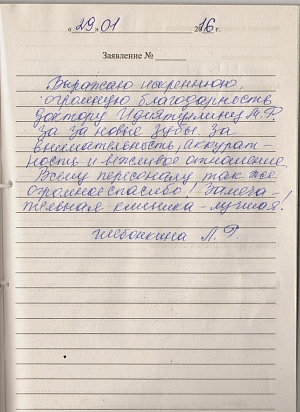 « 29 » 01 2016 г.
Заявление № ____
Выражаю искреннюю,
огромную благодарность
доктору Идиятулину М.Ф.
за за новые зубы. За
внимательность, аккурат-
ность и вежливое отношение.
Всему персоналу так же
огромное спасибо! Замеча-
тельная клиника - лучшая!
Л. Р